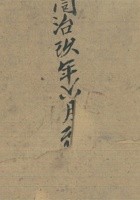 同治玖年六月